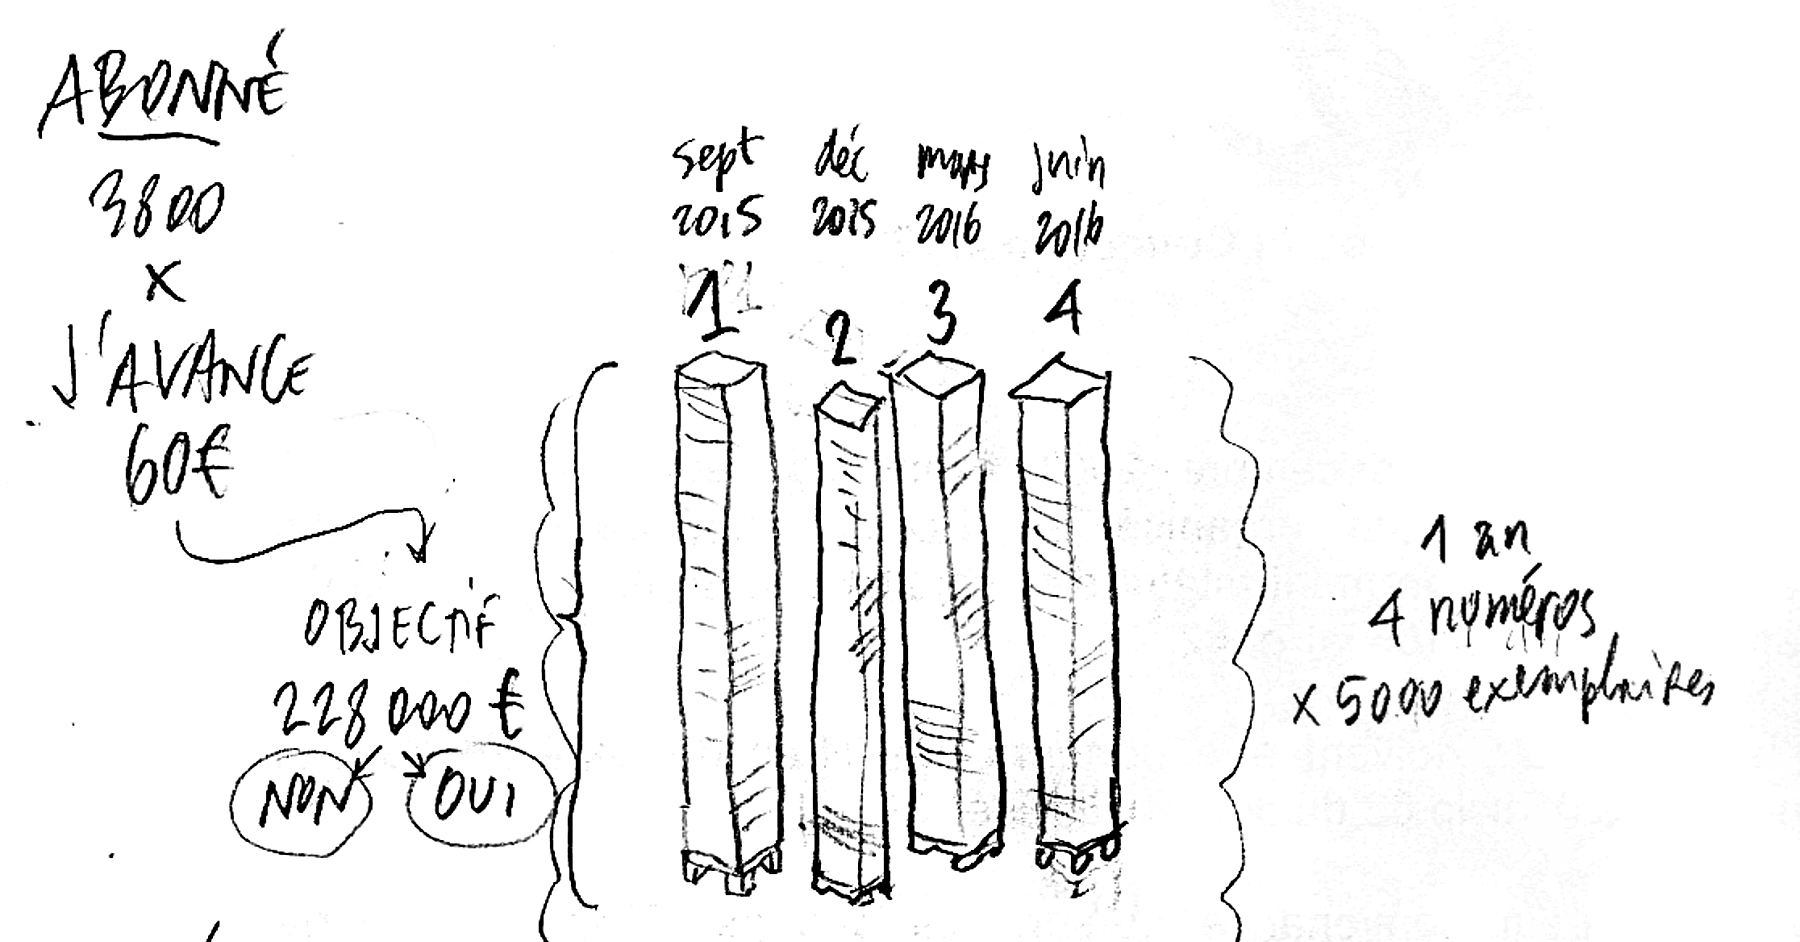 ABONNÉ
3800
x
J'AVANCE
60€
OBJECTIF
228 000 €
NON OUI
sept déc mars juin
2015 2015 2016 2016
1 2 3 4
1 an
4 numéros
x 5000 exemplaires